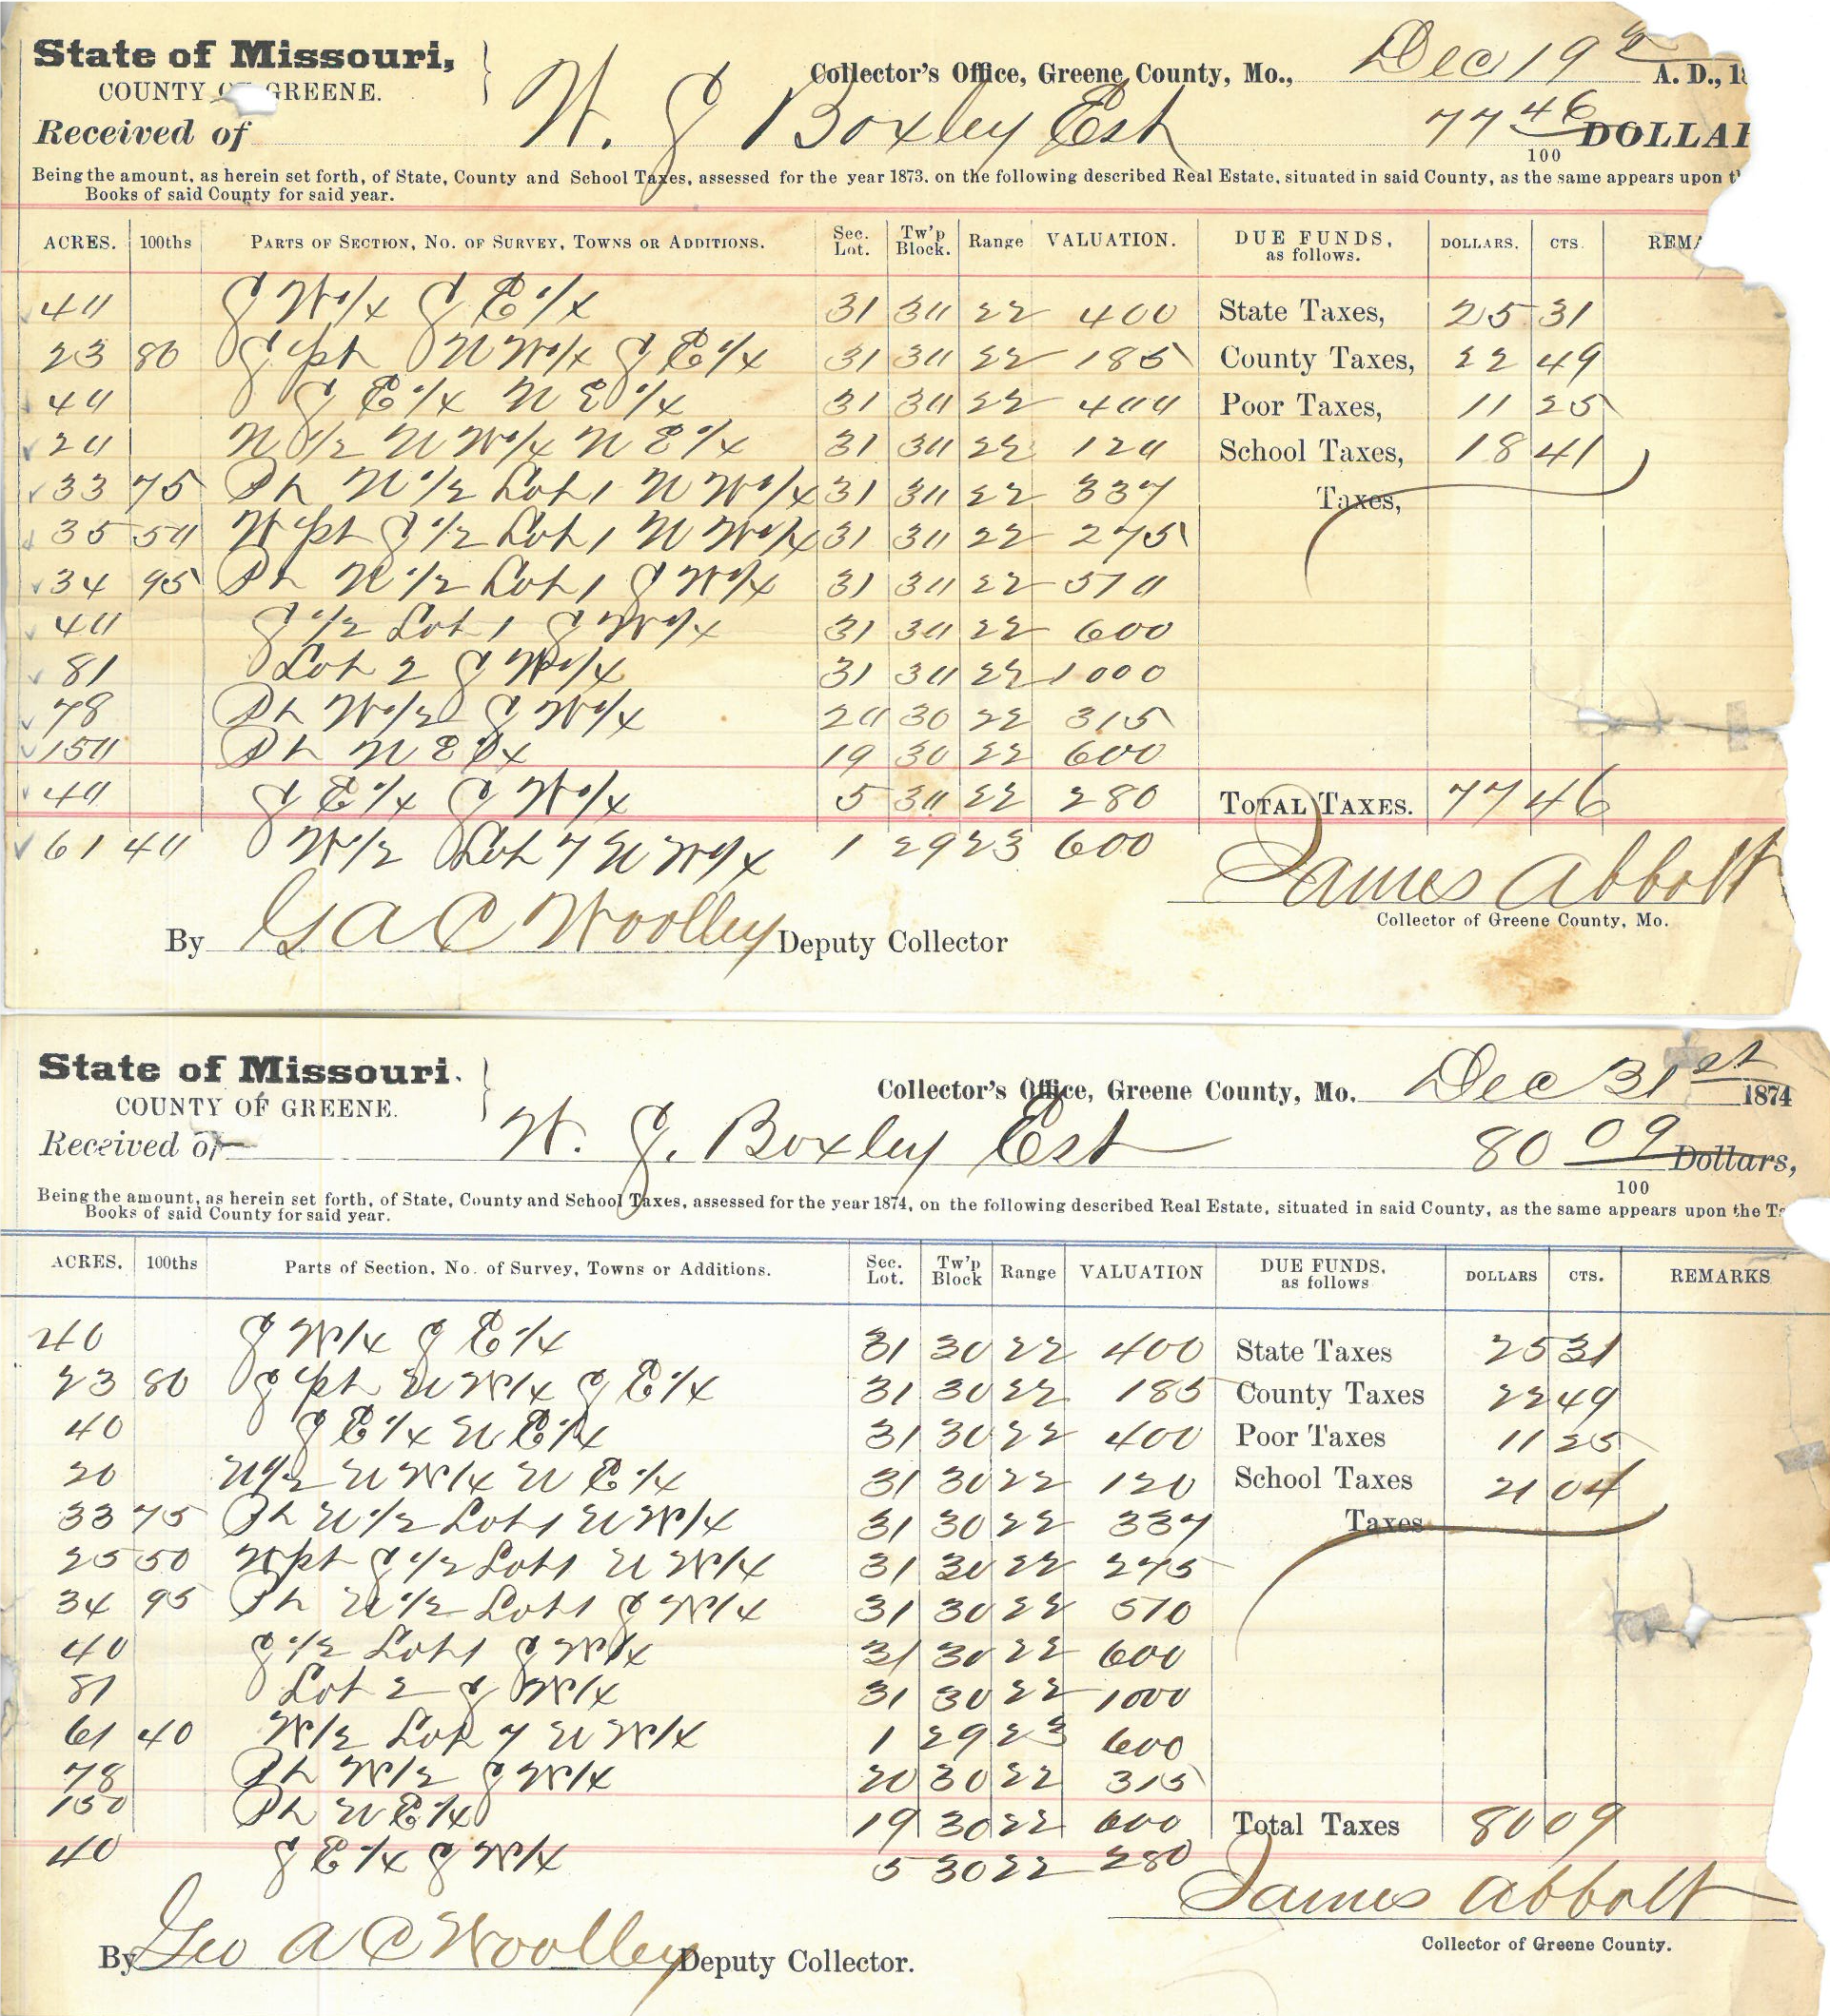 State of Missouri, } Collector's Office, Greene County, Mo., Dec 19th A. D., 1
COUNTY OF GREENE.
Received of W. J. Boxley Est 77 46/100 DOLLA
Being the amount, as herein set forth, of State, County and School Taxes, assessed for the year 1873, on the following described Real Estate, situated in said County, as the same appears upon t
Books of said County for said year.
ACRES. 100ths PARTS OF SECTION, NO. OF SURVEY, TOWNS OR ADDITIONS. Sec. Lot. Tw'p Block. Range VALUATION. DUE FUNDS, as follows. DOLLARS. CTS. REMA
40 S W 1/4 S E 1/4 31 30 22 400 State Taxes, 25 31
23 80 S pt N W 1/4 S E 1/4 31 30 22 185 County Taxes, 22 49
40 S E 1/4 N E 1/4 31 30 22 400 Poor Taxes, 11 25
20 N 1/2 N W 1/4 N E 1/4 31 30 22 120 School Taxes, 18 41
33 75 Pt N 1/2 Lot 1 N W 1/4 31 30 22 337 Taxes,
35 50 W pt S 1/2 Lot 1 N W 1/4 31 30 22 275
34 95 Pt N 1/2 Lot 1 S W 1/4 31 30 22 510
40 S 1/2 Lot 1 S W 1/4 31 30 22 600
81 Lot 2 S W 1/4 31 30 22 1000
78 Pt W 1/2 S W 1/4 20 30 22 315
150 Pt N E 1/4 19 30 22 600
40 S E 1/4 S W 1/4 5 30 22 280 TOTAL TAXES. 77 46
61 40 W 1/2 Lot 7 N W 1/4 1 29 23 600
James Abbott
Collector of Greene County, Mo.
By G A C Woolley Deputy Collector
State of Missouri. } Collector's Office, Greene County, Mo. Dec 31st 1874
COUNTY OF GREENE.
Received of W. J. Boxley Est 80 09/100 Dollars,
Being the amount, as herein set forth, of State, County and School Taxes, assessed for the year 1874, on the following described Real Estate, situated in said County, as the same appears upon the T
Books of said County for said year.
ACRES. 100ths Parts of Section, No. of Survey, Towns or Additions. Sec. Lot. Tw'p Block Range VALUATION DUE FUNDS, as follows DOLLARS CTS. REMARKS
40 S W 1/4 S E 1/4 31 30 22 400 State Taxes 25 31
23 80 S pt N W 1/4 S E 1/4 31 30 22 185 County Taxes 22 49
40 S E 1/4 N E 1/4 31 30 22 400 Poor Taxes 11 25
20 N 1/2 N W 1/4 N E 1/4 31 30 22 120 School Taxes 21 04
33 75 Pt N 1/2 Lot 1 N W 1/4 31 30 22 337 Taxes
25 50 W pt S 1/2 Lot 1 N W 1/4 31 30 22 275
34 95 Pt N 1/2 Lot 1 S W 1/4 31 30 22 510
40 S 1/2 Lot 1 S W 1/4 31 30 22 600
81 Lot 2 S W 1/4 31 30 22 1000
61 40 W 1/2 Lot 7 N W 1/4 1 29 23 600
78 Pt W 1/2 S W 1/4 20 30 22 315
150 Pt N E 1/4 19 30 22 600 Total Taxes 80 09
40 S E 1/4 S W 1/4 5 30 22 280
James Abbott
Collector of Greene County.
By Geo A C Woolley Deputy Collector.